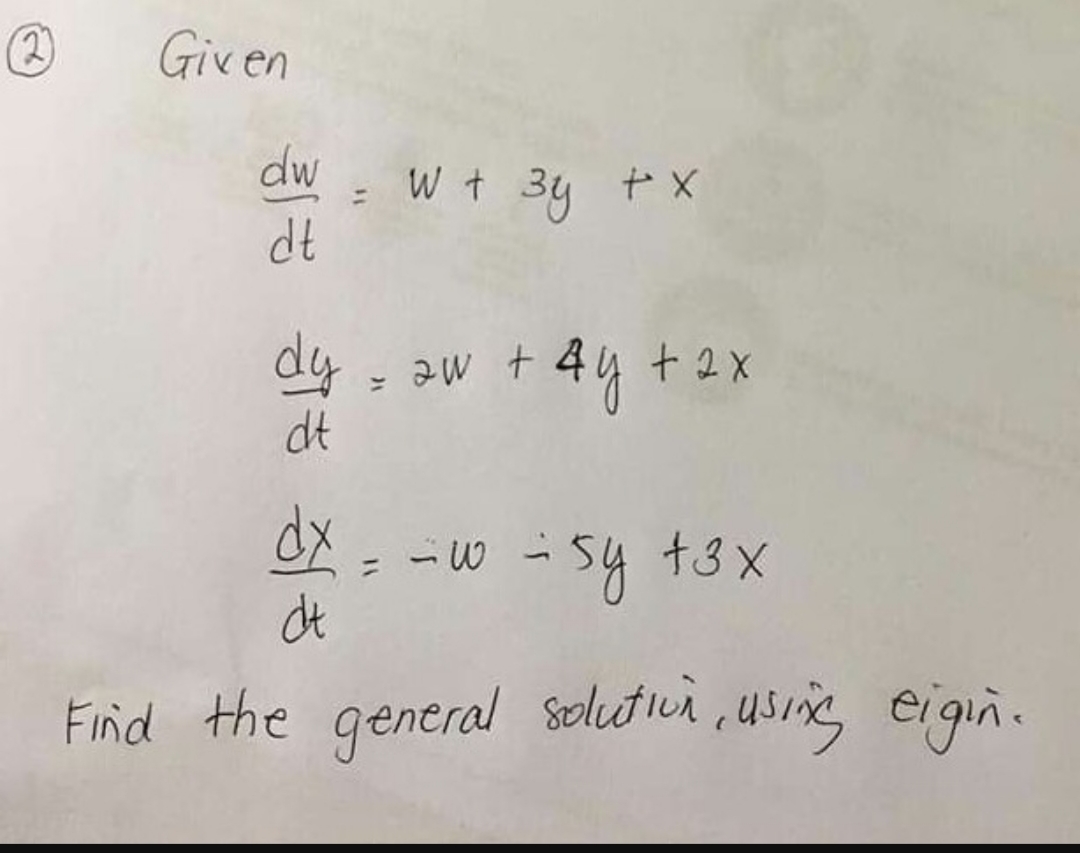 ② Given
dw/dt = w + 3y + x
dy/dt = 2w + 4y + 2x
dx/dt = -w - 5y + 3x
Find the general solution, using eigin.